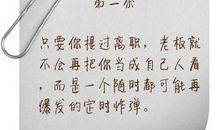 第一条
只要你提过离职，老板就
不会再把你当成自己人看
，而是一个随时都可能再
爆发的定时炸弹。